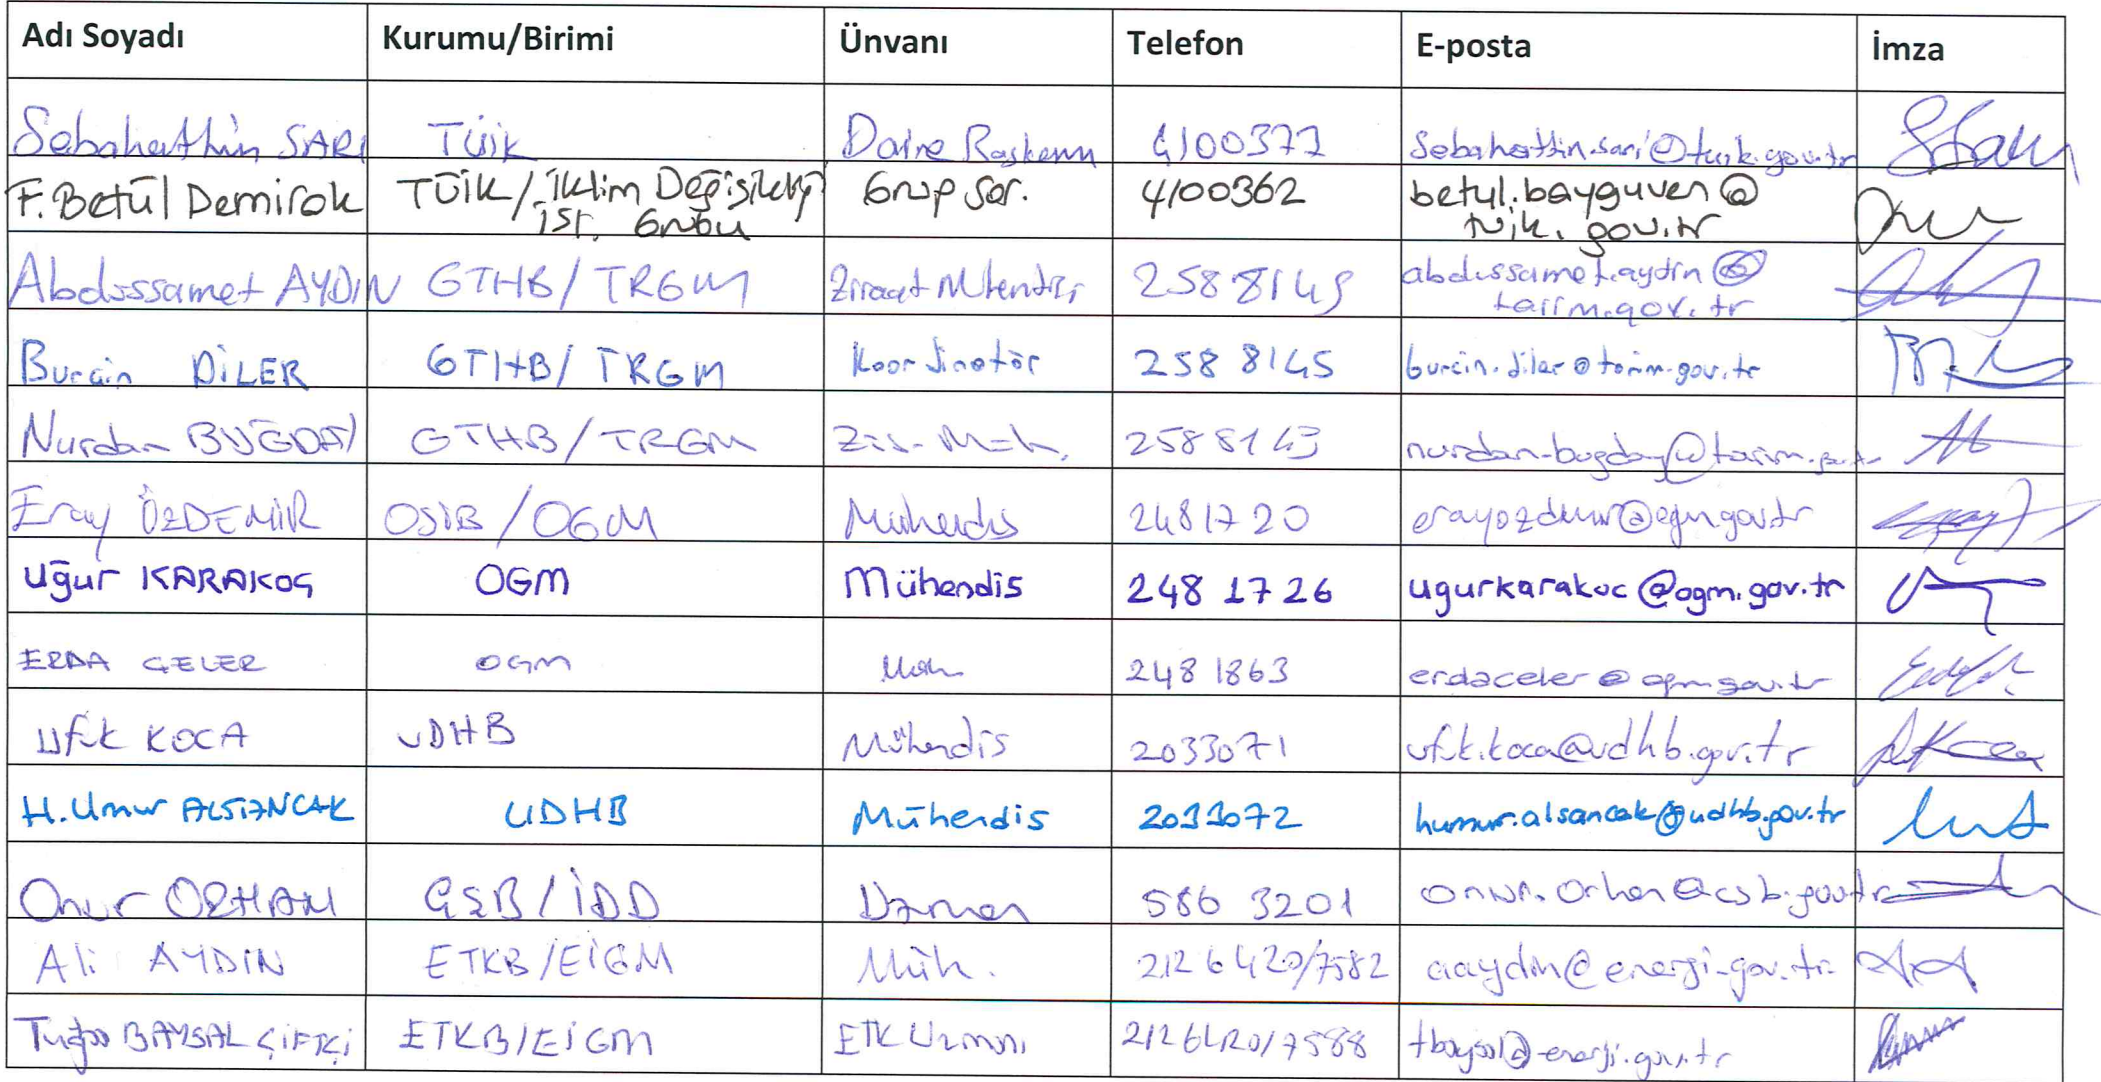 Adı Soyadı Kurumu/Birimi Ünvanı Telefon E-posta İmza
Sebahattin SARI TÜİK Daire Başkanı 4100377 sebahattin.sari@tuik.gov.tr
F. Betül Demirok TÜİK/İklim Değişikliği Grup Sor. 4100362 betul.bayguven@
ist. Grubu tuik.gov.tr
Abdussamet AYDIN GTHB/TRGM Ziraat Mühendisi 258 8145 abdussamet.aydin@
tarim.gov.tr
Burcin DİLER GTHB/TRGM Koordinatör 258 8145 burcin.diler@tarim.gov.tr
Nurdan BUĞDAY GTHB/TRGM Zir. Müh. 258 8143 nurdan.bugday@tarim.gov.tr
Eray ÖZDEMİR OSİB/OGM Mühendis 2481720 erayozdemir@ogm.gov.tr
Uğur KARAKOÇ OGM Mühendis 248 1726 ugurkarakoc@ogm.gov.tr
ERDA ÇELER OGM Müh 248 1863 erdaceler@ogm.gov.tr
Ufuk KOCA UDHB Mühendis 2033071 ufuk.koca@udhb.gov.tr
H. Umur ALSANCAK UDHB Mühendis 2033072 humur.alsancak@udhb.gov.tr
Onur ORHAN ÇŞB/İDD Uzman 586 3201 onur.orhan@csb.gov.tr
Ali AYDIN ETKB/EİGM Müh. 212 6420/7582 aaydin@energi.gov.tr
Tuğba BAYSAL ÇİFTÇİ ETKB/EİGM ETK Uzmanı 2126420/7588 tbaysal@energi.gov.tr